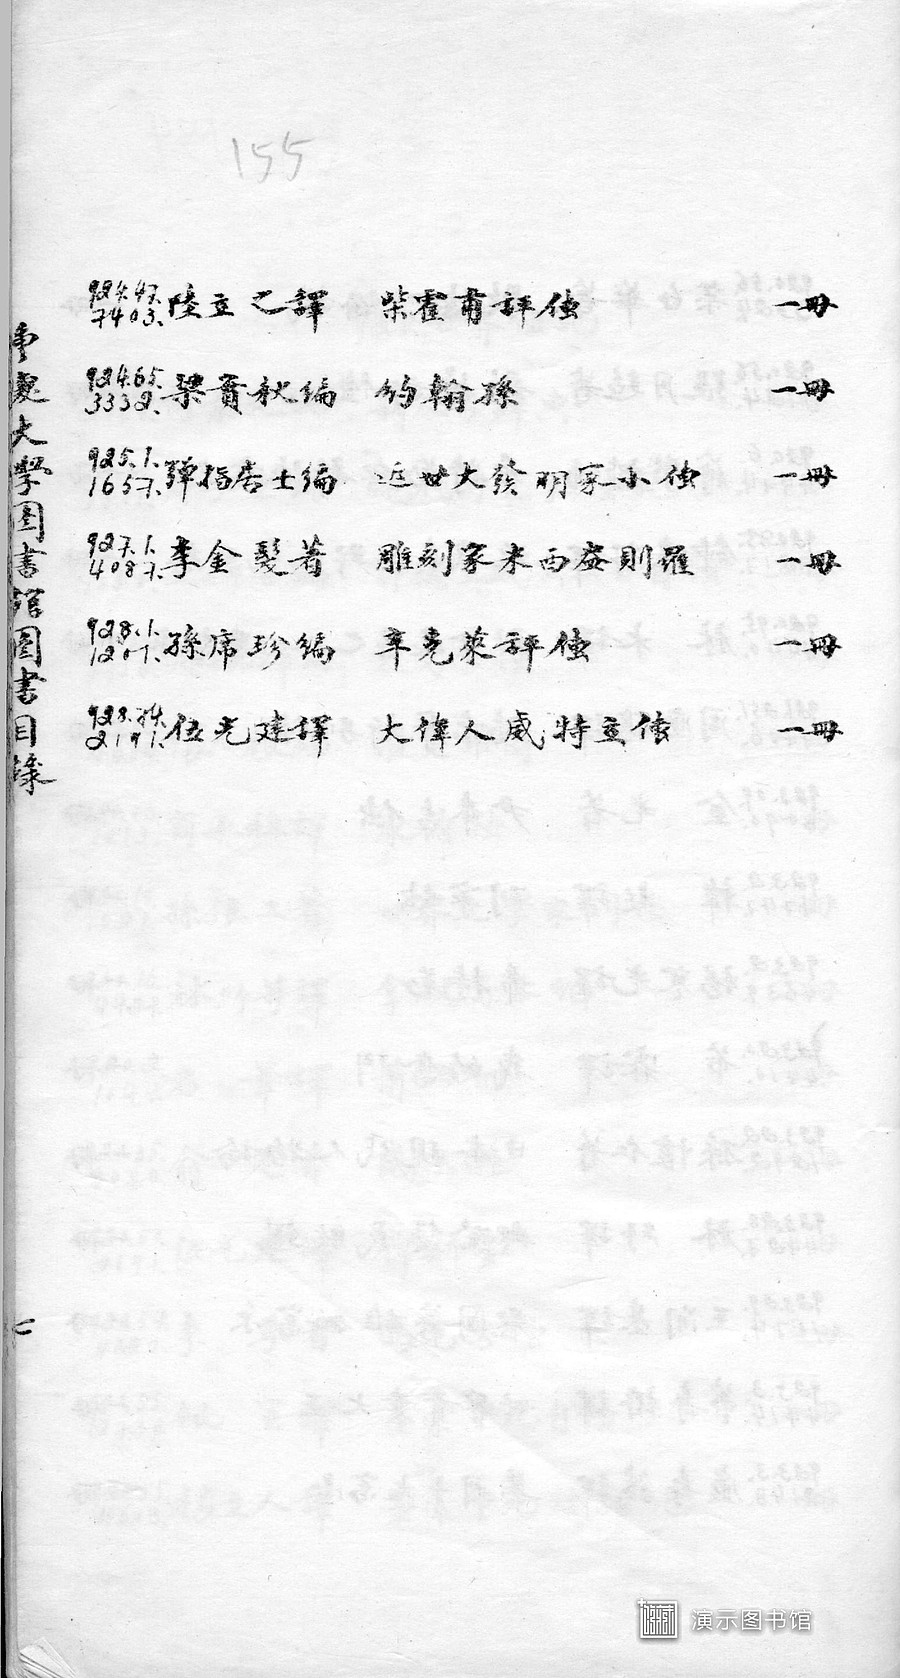 155
924.47. 7403. 陸立之譯 柴霍甫評傳 一冊
924.65. 3332. 梁實秋編 約翰孫 一冊
925.1. 1657. 彈指居士編 近世大發明家小傳 一冊
927.1. 4087. 李金髮著 雕刻家米西盎則羅 一冊
928.1. 1207. 孫席珍編 辛克萊評傳 一冊
928.24. 2191. 伍光建譯 大偉人威特立傳 一冊
重慶大學圖書館圖書目錄
演示图书馆